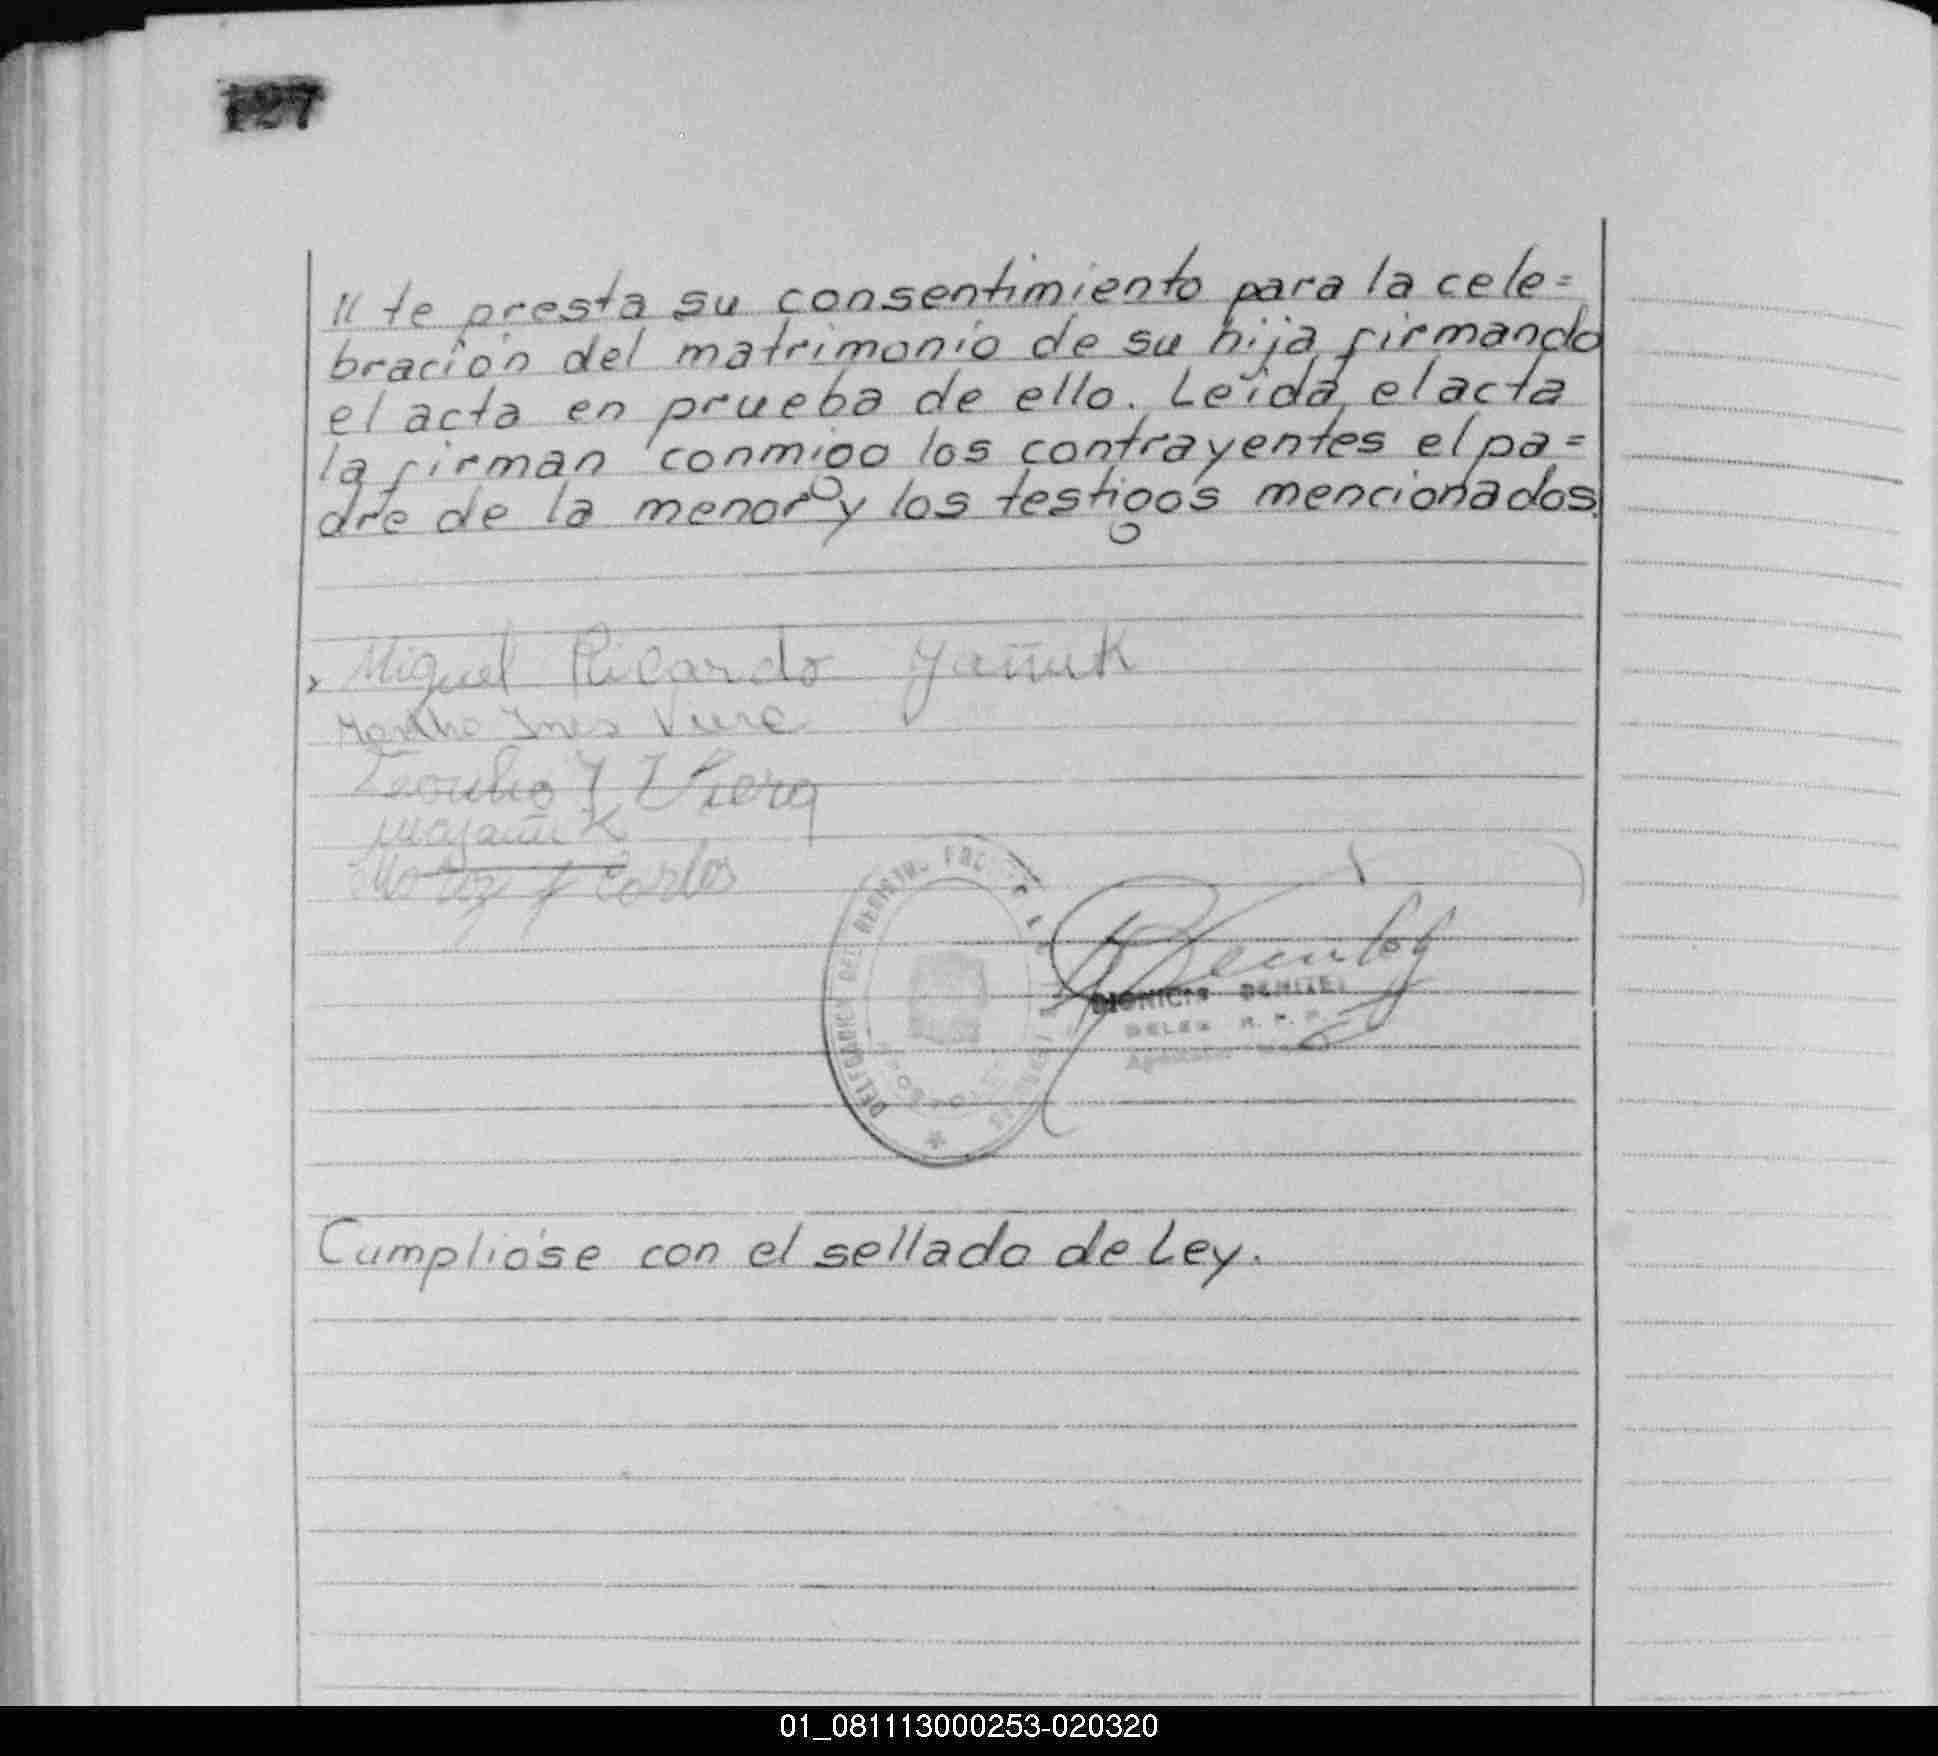 127
// te presta su consentimiento para la cele=
bración del matrimonio de su hija firmando
el acta en prueba de ello. Leída el acta
la firman conmigo los contrayentes el pa=
dre de la menor y los testigos mencionados.
Miguel Ricardo Yañuk
Martha Ines Viera
Viera
Carlos
DELEGACION DEL REGISTRO
DIONICIO BENITEZ
DELEG R. P. P.
Cumplióse con el sellado de Ley.
01_081113000253-020320